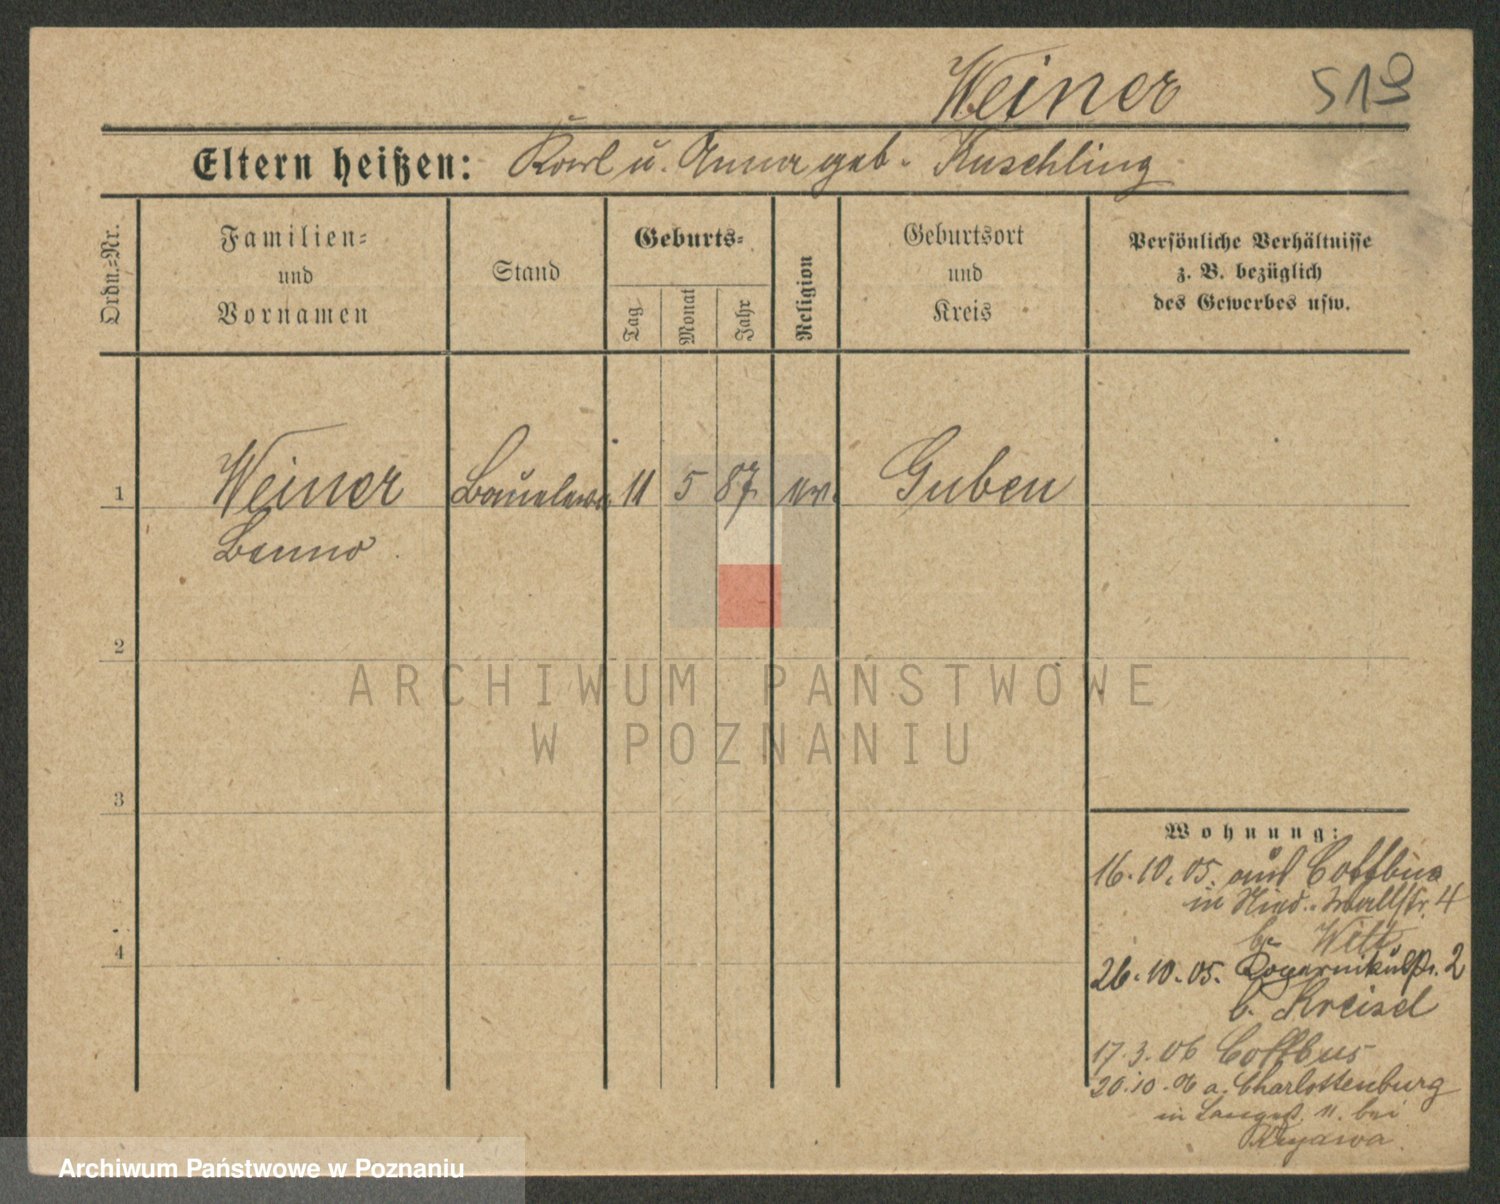 Weiner 519
Eltern heißen: Karl u. Anna geb. Kuschling
Ordn.-Nr.
Familien-
und
Vornamen
Stand
Geburts-
Tag
Monat
Jahr
Religion
Geburtsort
und
Kreis
Persönliche Verhältnisse
z. B. bezüglich
des Gewerbes usw.
1 Weiner 11 5 87 Guben
Benno
2
3
4
Wohnung:
16.10.05. aus Cottbus
in 4
b. Witt
26.10.05. 2
b. Kreisel
17.3.06 Cottbus
20.10.06 a. Charlottenburg
in Langestr. 11. bei
ARCHIWUM PAŃSTWOWE
W POZNANIU
Archiwum Państwowe w Poznaniu